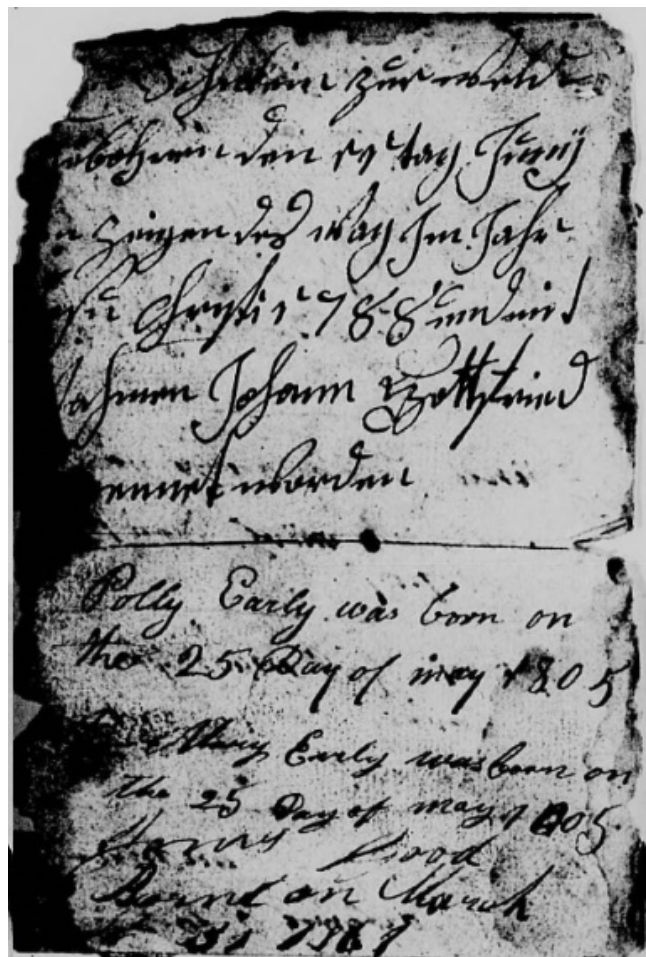 Söhnlein zur welt
gebohren den 19 tag Junÿ
Zeigen des wag Im Jahr
Christi 1788 und mit
Nahmen Johann Gottfried
ennet worden
Polly Early was born on
the 25 Day of may 1805
Mary Early was born on
the 25 Day of may 1805
Good
Borne on March